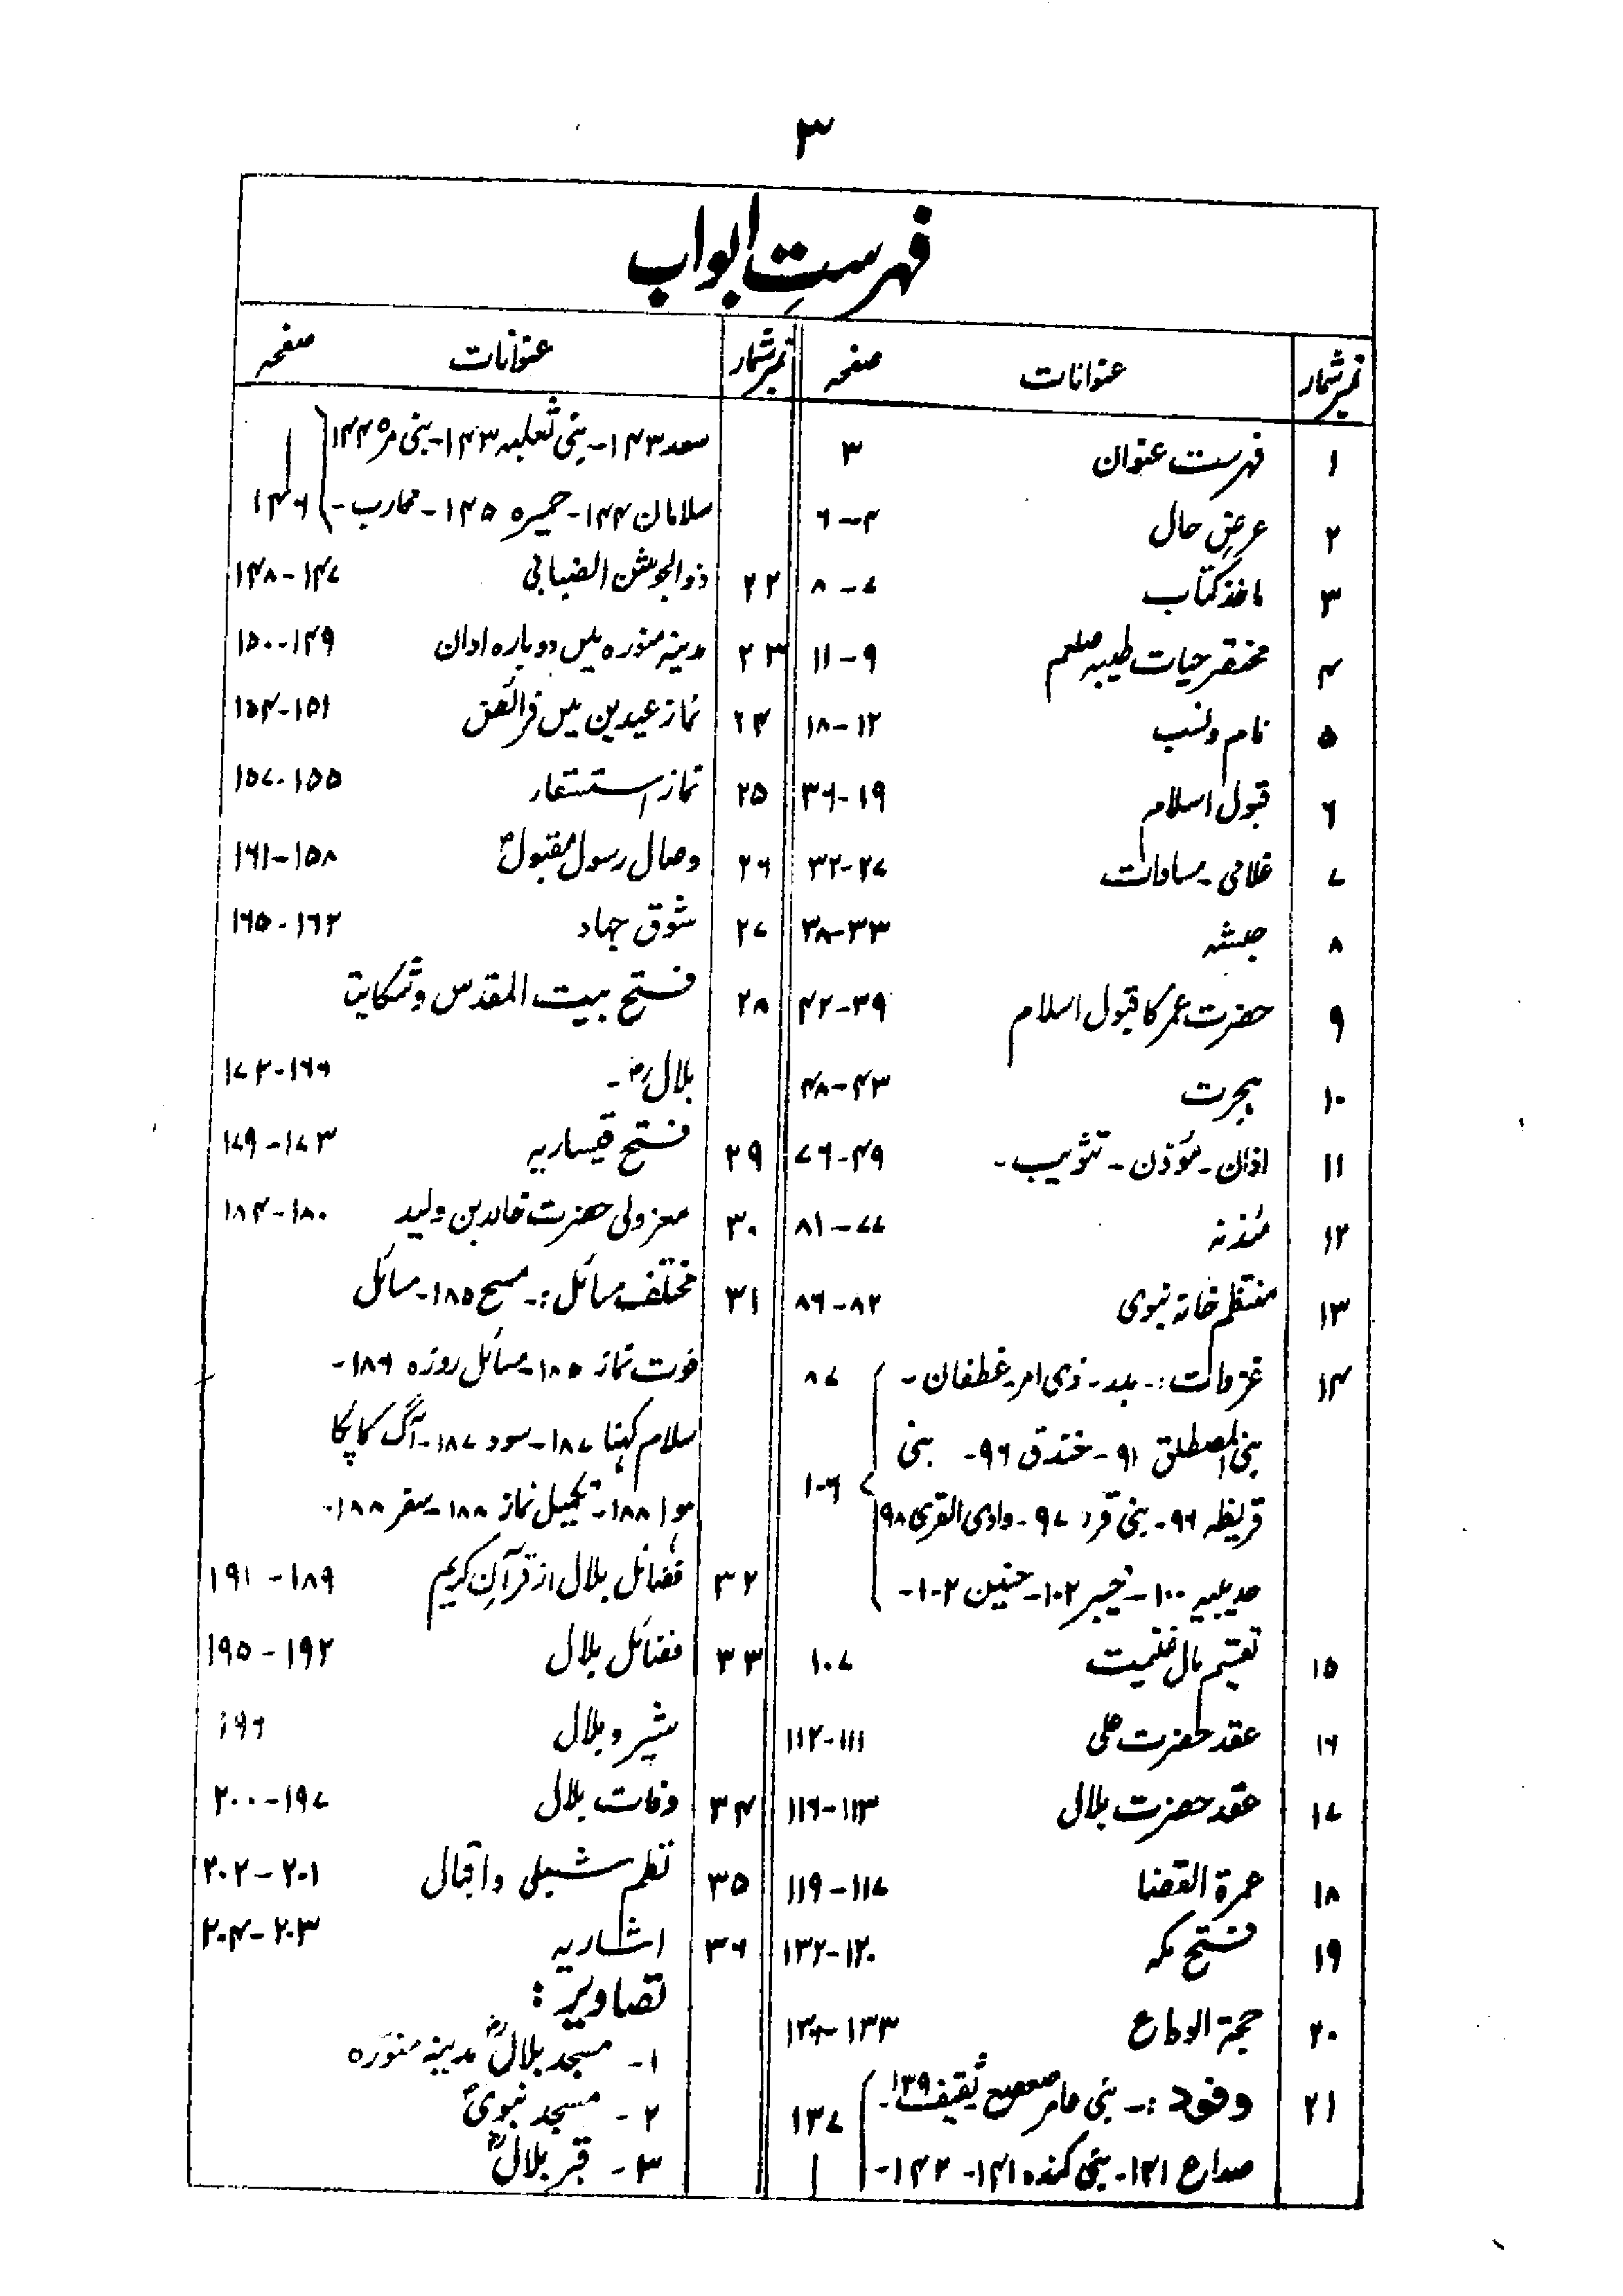 ۳
فہرستِ ابواب
نمبر شمار عنوانات صفحہ
۱ فہرست عنوان ۳
۲ عرضِ حال ۴-۶
۳ ماخذ کتاب ۷-۸
۴ مختصر حیات طیبہ صلعم ۹-۱۱
۵ نام و نسب ۱۲-۱۸
۶ قبول اسلام ۱۹-۳۶
۷ غلامی - مساوات ۲۷-۳۲
۸ حبشہ ۳۳-۳۸
۹ حضرت عمر کا قبول اسلام ۳۹-۴۲
۱۰ ہجرت ۴۳-۴۸
۱۱ اذان - مؤذن - تثویب - ۴۹-۷۶
۱۲ مئذنہ ۷۷-۸۱
۱۳ منتظم خانہ نبوی ۸۲-۸۶
۱۴ غزوات :- بدر - ذی امر - غطفان - ۸۷
بنی المصطلق ۹۱ - خندق ۹۶ - بنی
قریظہ ۹۶ - بنی قرد ۹۷ - وادی القریٰ ۹۸ ۱۰۶
حدیبیہ ۱۰۰ - خیبر ۱۰۲ - حنین ۱۰۲ -
۱۵ تقسیم مال غنیمت ۱۰۷
۱۶ عقد حضرت علی ۱۱۱-۱۱۲
۱۷ عقد حضرت بلال ۱۱۳-۱۱۶
۱۸ عمرۃ القضا ۱۱۷-۱۱۹
۱۹ فتح مکہ ۱۲۰-۱۳۲
۲۰ حجۃ الوداع ۱۳۳-
۲۱ وفود :- بنی عامر صعصع ثقیف ۱۳۹ - ۱۳۷
صدارع ۱۴۱ - بنی کندہ ۱۴۱ - ۱۴۲ -
نمبر شمار عنوانات صفحہ
سعد ۱۴۳ - بنی ثعلبہ ۱۴۳ - بنی مرہ ۱۴۴
سلامان ۱۴۴ - حمیرہ ۱۴۵ - محارب - ۱۴۶
۲۲ ذوالجوشن الضبابی ۱۴۷-۱۴۸
۲۳ مدینہ منورہ میں دوبارہ اذان ۱۴۹-۱۵۰
۲۴ نماز عیدین میں فرائض ۱۵۱-۱۵۴
۲۵ نماز استسقار ۱۵۵-۱۵۷
۲۶ وصال رسول مقبولؐ ۱۵۸-۱۶۱
۲۷ شوق جہاد ۱۶۲-۱۶۵
۲۸ فتح بیت المقدس و شکایت
بلالؓ - ۱۶۶-۱۷۲
۲۹ فتح قیساریہ ۱۷۳-۱۷۹
۳۰ معزولی حضرت خالد بن ولید ۱۸۰-۱۸۴
۳۱ مختلف مسائل :- مسح ۱۸۵ - مسائل
فوت نماز ۱۸۵ - مسائل روزہ ۱۸۶ -
سلام کہنا ۱۸۷ - سود ۱۸۷ - آگ کا پکا
ہوا ۱۸۸ - تکمیل نماز ۱۸۸ - سفر ۱۸۸ -
۳۲ فضائل بلال از قرآن کریم ۱۸۹-۱۹۱
۳۳ فضائل بلال ۱۹۲-۱۹۵
شیر و بلال ۱۹۶
۳۴ وفات بلال ۱۹۷-۲۰۰
۳۵ نظم شبلی و اقبال ۲۰۱-۲۰۲
۳۶ اشاریہ ۲۰۳-۲۰۴
تصاویر :
۱- مسجد بلالؓ مدینہ منورہ
۲- مسجد نبویؐ
۳- قبر بلالؓ